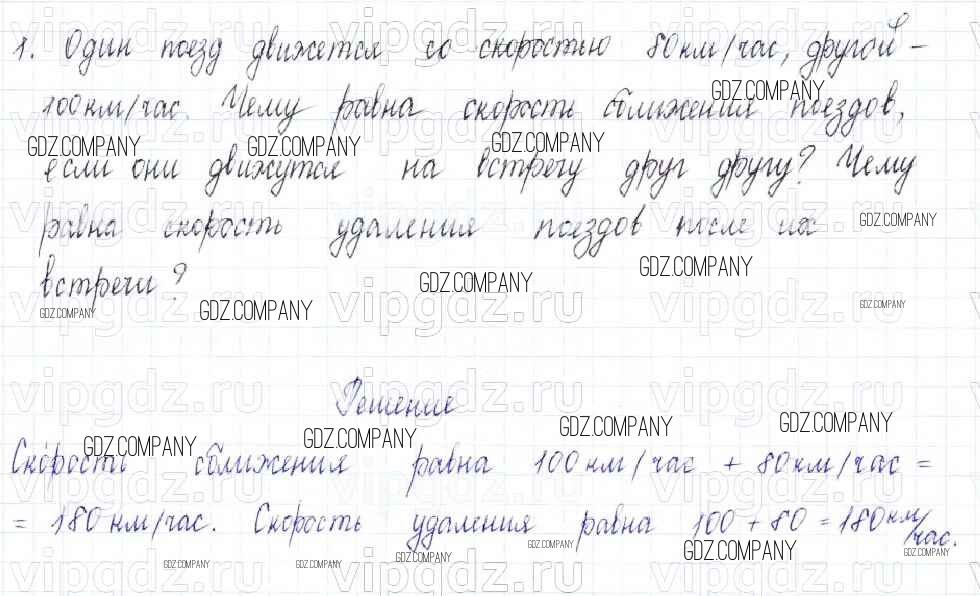 1. Один поезд движется со скоростью 80 км/час, другой –
100 км/час. Чему равна скорость сближения поездов,
если они движутся на встречу друг другу? Чему
равна скорость удаления поездов после их
встречи?
Решение
Скорость сближения равна 100 км/час + 80 км/час =
= 180 км/час. Скорость удаления равна 100 + 80 = 180 км/час.
GDZ.COMPANY
GDZ.COMPANY GDZ.COMPANY GDZ.COMPANY
GDZ.COMPANY
GDZ.COMPANY GDZ.COMPANY
GDZ.COMPANY GDZ.COMPANY GDZ.COMPANY
GDZ.COMPANY GDZ.COMPANY
GDZ.COMPANY GDZ.COMPANY
GDZ.COMPANY GDZ.COMPANY GDZ.COMPANY GDZ.COMPANY
GDZ.COMPANY GDZ.COMPANY
vipgdz.ru